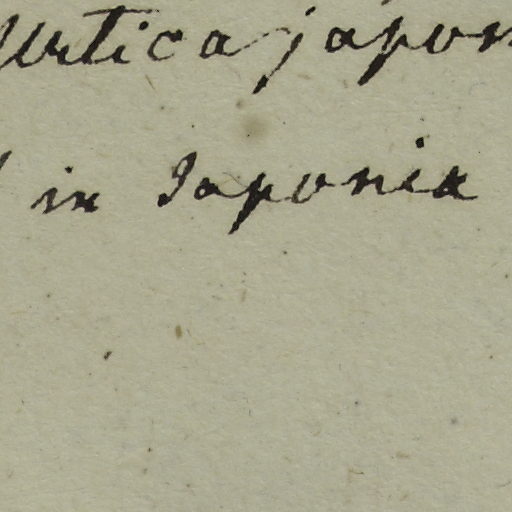 Urtica japon
in Japonia